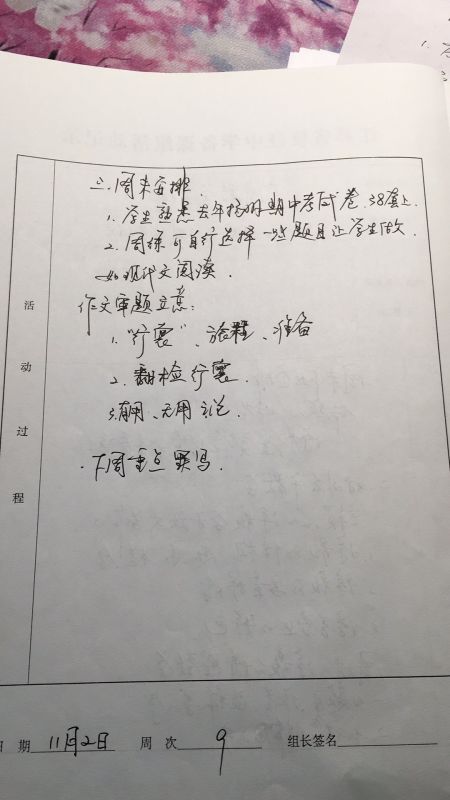 三.周末安排
1.学生熟悉去年扬州期中考试卷.38套上.
2.周练可自行选择一些题目让学生做.
如现代文阅读.
作文审题立意:
1."行囊"、旅程、准备
2.翻检行囊.
3.有用、无用之说.
.下周重点默写.
活动过程
日 期 11月2日 周 次 9 组长签名